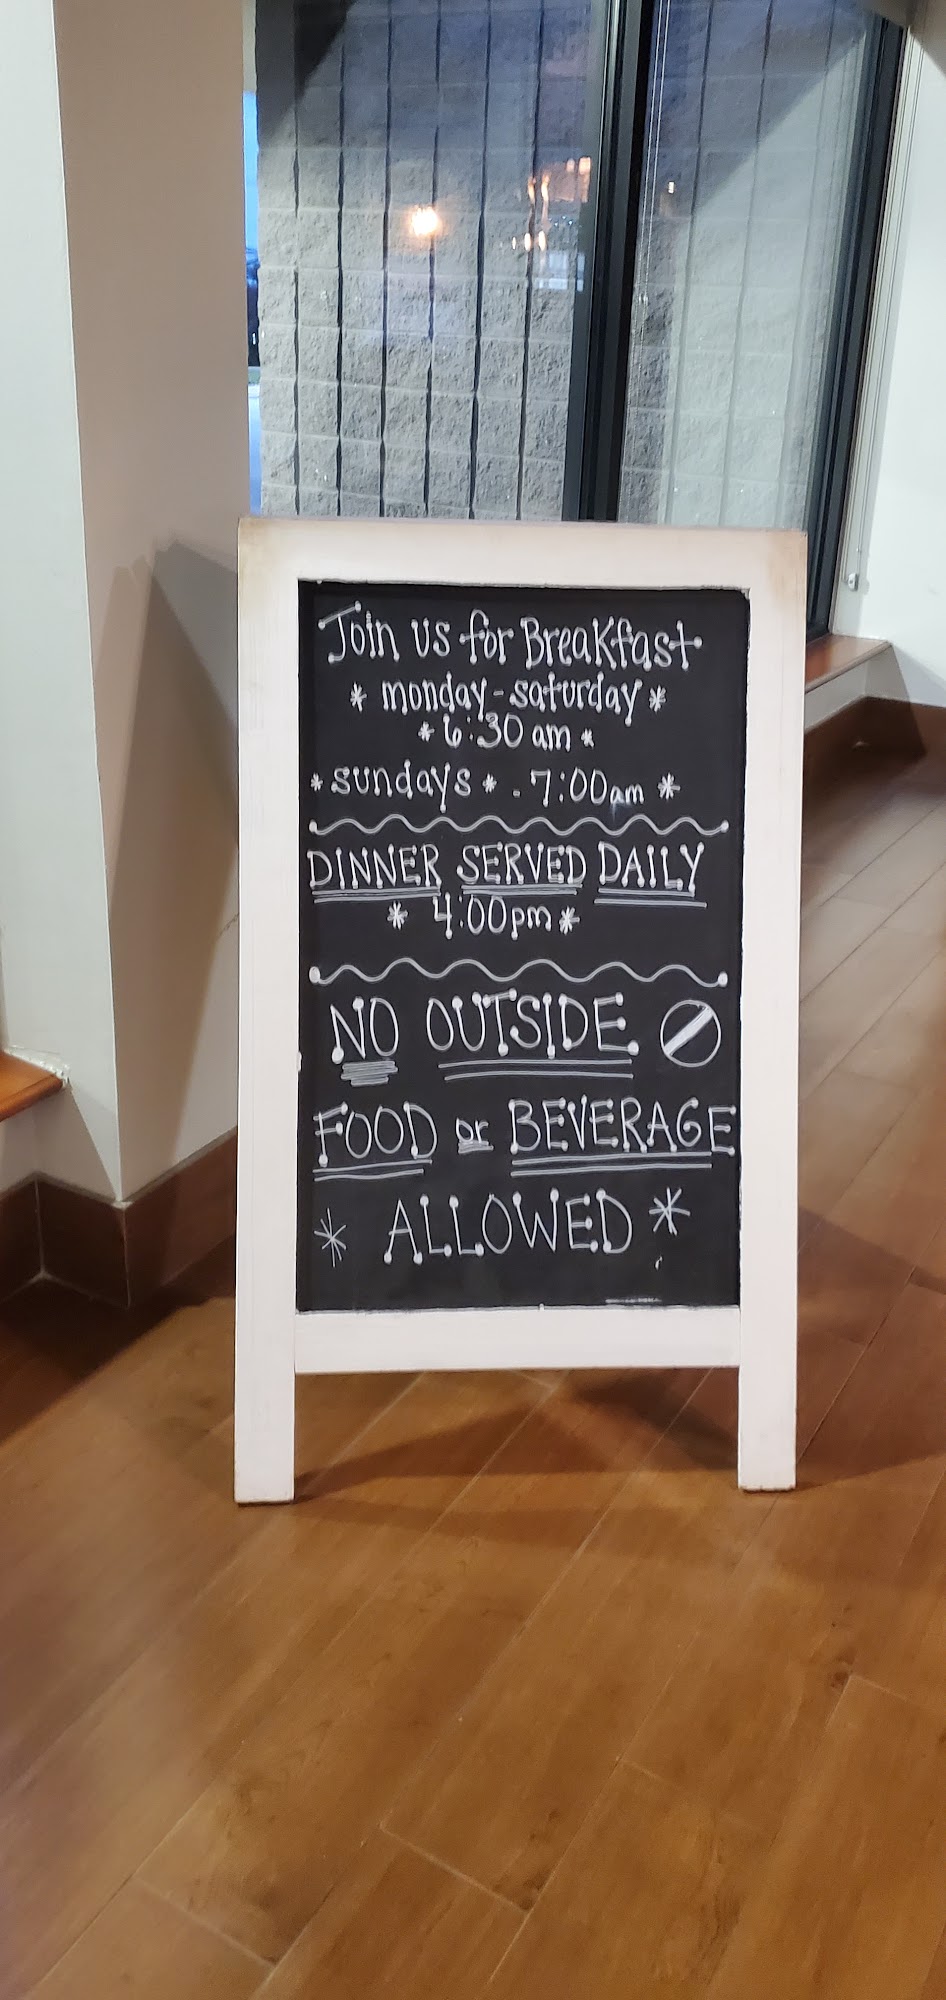 Join us for Breakfast
* monday - saturday *
* 6:30 am *
* sundays * - 7:00am *
DINNER SERVED DAILY
* 4:00pm *
NO OUTSIDE
FOOD or BEVERAGE
* ALLOWED *